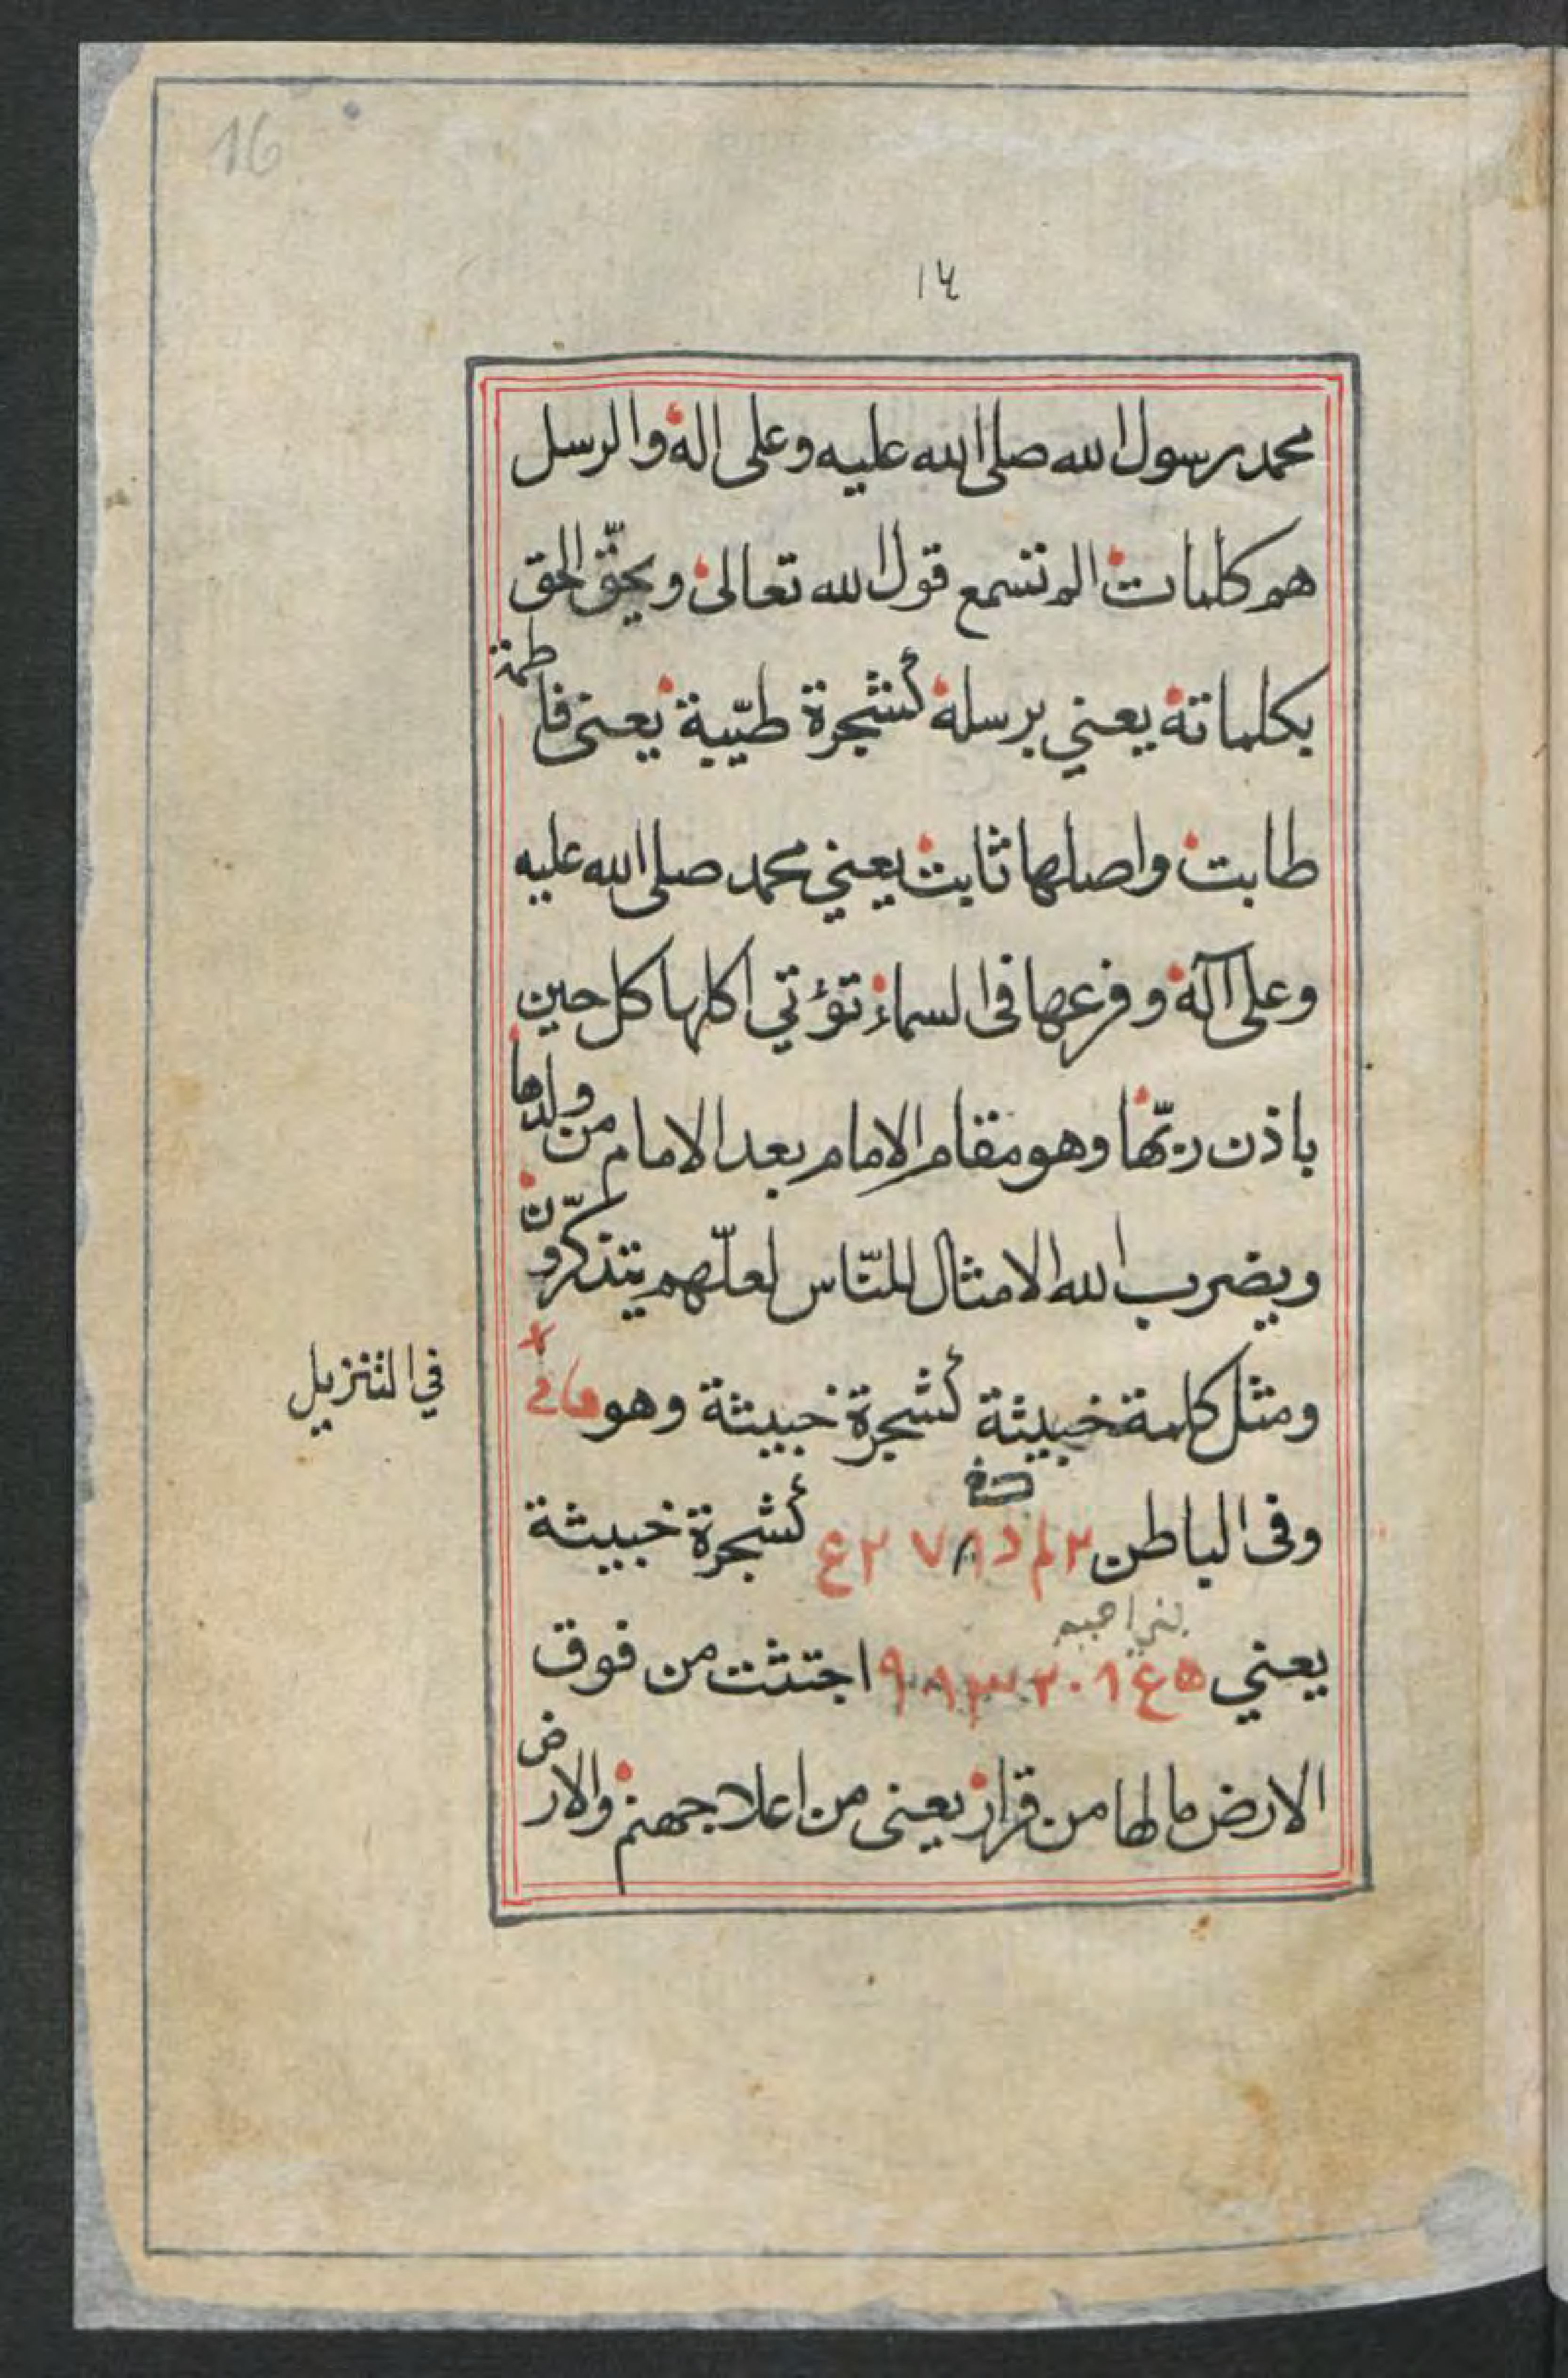 16
١٦
محمد رسول الله صلى الله عليه وعلى اله والرسل
هم كلمات الم تسمع قول الله تعالى ويحقّ الحق
بكلماته يعني برسله كشجرة طيّبة يعنى فاطمة
طابت واصلها ثابت يعني محمد صلى الله عليه
وعلى آله وفرعها فى السماء تؤتي اكلها كل حين
باذن ربّها وهو مقام الامام بعد الامام من ولدها
ويضرب الله الامثال للنّاس لعلّهم يتذكّرون
ومثل كلمة خبيثة كشجرة خبيثة وهو
في التنزيل
وفى الباطن كشجرة خبيثة
يعني اجتثت من فوق
الارض ما لها من قرار يعنى من اعلا جهنم والارض